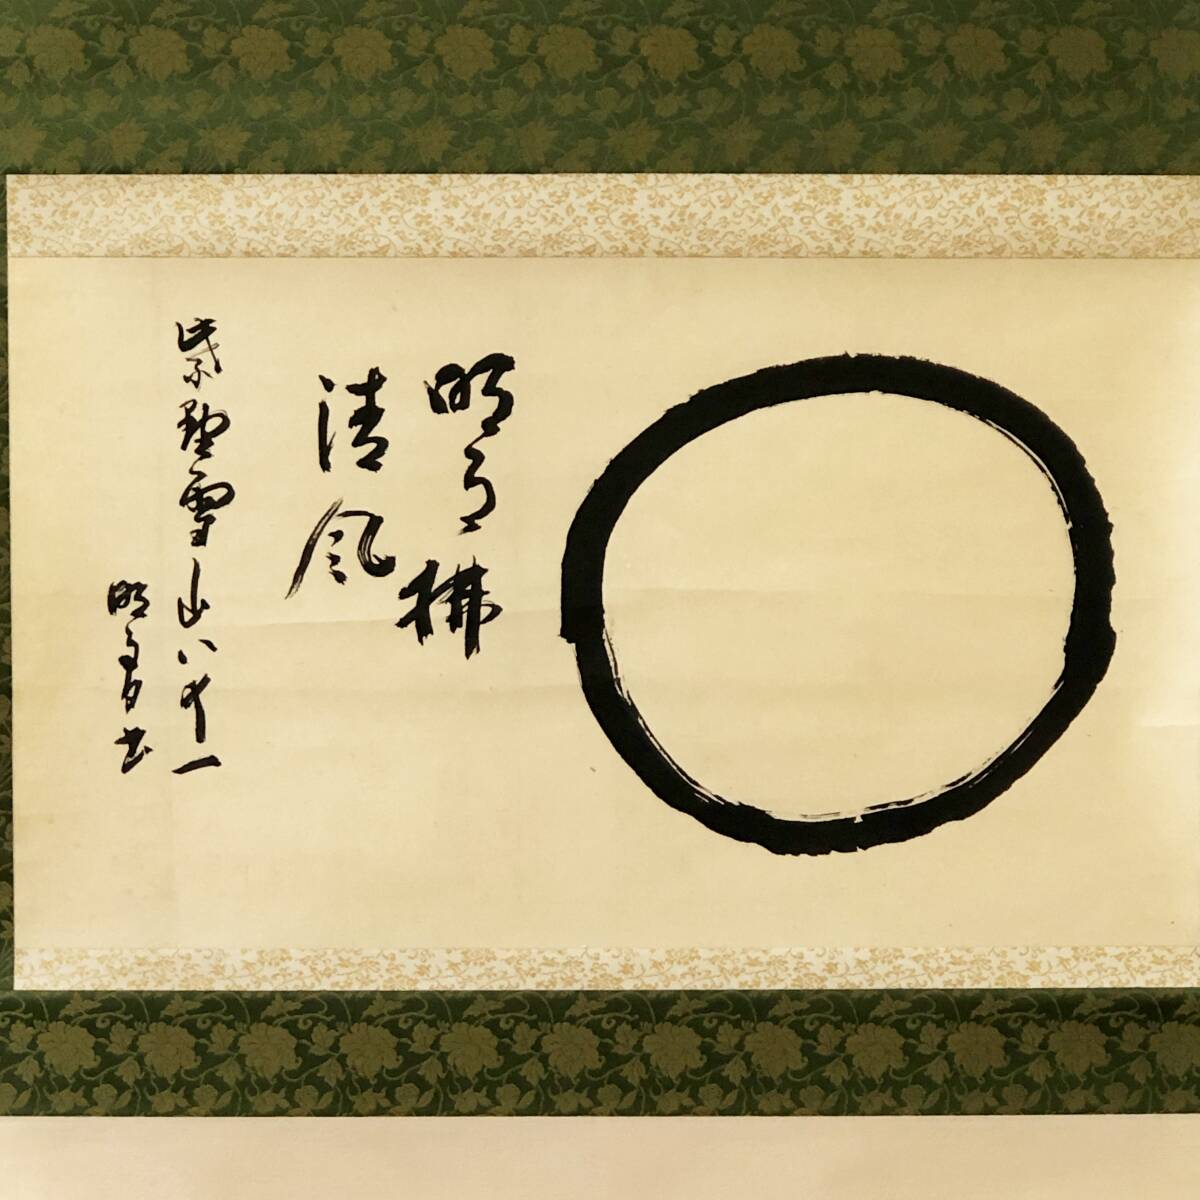 明月拂
清風
紫野雪山八十一
明 書